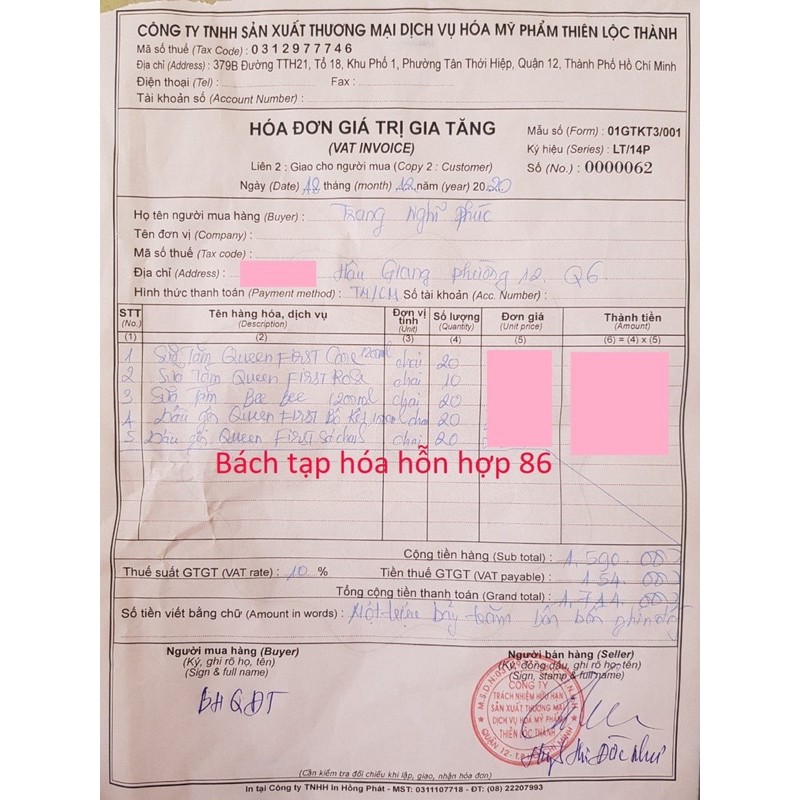 CÔNG TY TNHH SẢN XUẤT THƯƠNG MẠI DỊCH VỤ HÓA MỸ PHẨM THIÊN LỘC THÀNH
Mã số thuế (Tax Code) : 0312977746
Địa chỉ (Address) : 379B Đường TTH21, Tổ 18, Khu Phố 1, Phường Tân Thới Hiệp, Quận 12, Thành Phố Hồ Chí Minh
Điện thoại (Tel) : Fax :
Tài khoản số (Account Number) :
HÓA ĐƠN GIÁ TRỊ GIA TĂNG
(VAT INVOICE)
Liên 2 : Giao cho người mua (Copy 2 : Customer)
Ngày (Date) 18 tháng (month) 12 năm (year) 2020
Mẫu số (Form) : 01GTKT3/001
Ký hiệu (Series) : LT/14P
Số (No.) : 0000062
Họ tên người mua hàng (Buyer) : Trang Nghi Phúc
Tên đơn vị (Company) :
Mã số thuế (Tax code) :
Địa chỉ (Address) : Hậu Giang phường 12. Q6.
Hình thức thanh toán (Payment method) : TM/CK Số tài khoản (Acc. Number) :
STT (No.) Tên hàng hóa, dịch vụ (Description) Đơn vị tính (Unit) Số lượng (Quantity) Đơn giá (Unit price) Thành tiền (Amount)
(1) (2) (3) (4) (5) (6) = (4) x (5)
1 Sữa Tắm Queen First Care 1200ml chai 20
2 Sữa Tắm Queen First Rose chai 10
3 Sữa Tắm Bee Bee 1200ml chai 20
4 Dầu gội Queen First Bồ Kết 1200ml chai 20
5 Dầu gội Queen First chai 20
Bách tạp hóa hỗn hợp 86
Cộng tiền hàng (Sub total) : 1.590.000
Thuế suất GTGT (VAT rate) : 10 % Tiền thuế GTGT (VAT payable) : 154.000
Tổng cộng tiền thanh toán (Grand total) : 1.744.000
Số tiền viết bằng chữ (Amount in words) : Một triệu bảy trăm bốn bốn nghìn đồng
Người mua hàng (Buyer)
(Ký, ghi rõ họ, tên)
(Sign & full name)
BH QĐT
Người bán hàng (Seller)
(Ký, đóng dấu, ghi rõ họ, tên)
(Sign, stamp & full name)
CÔNG TY
TRÁCH NHIỆM HỮU HẠN
SẢN XUẤT THƯƠNG MẠI
DỊCH VỤ HÓA MỸ PHẨM
THIÊN LỘC THÀNH
(Cần kiểm tra đối chiếu khi lập, giao, nhận hóa đơn)
In tại Công ty TNHH In Hồng Phát - MST: 0311107718 - ĐT: (08) 22207993